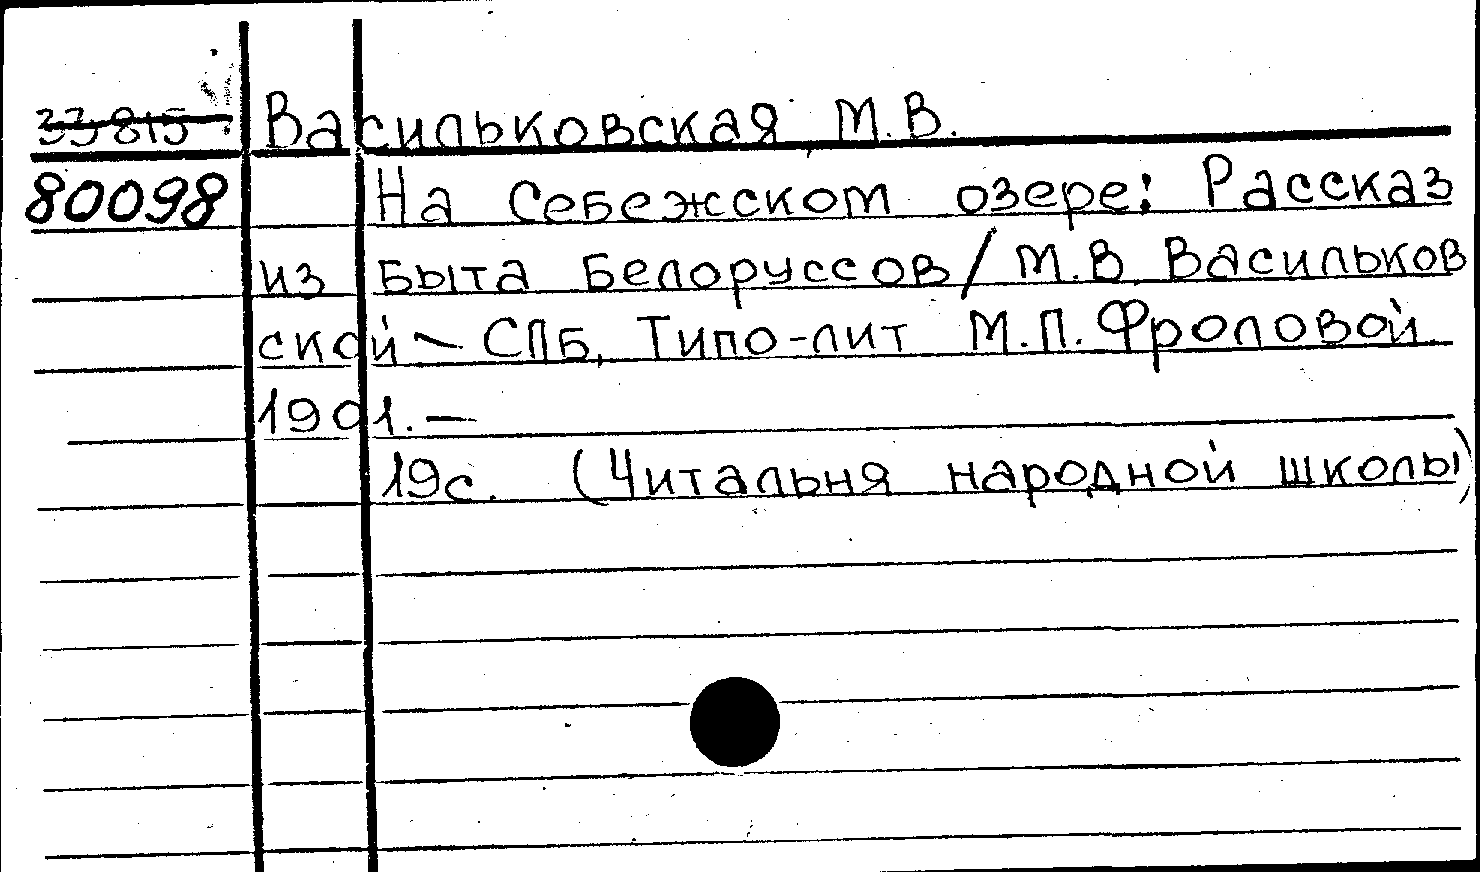 33815 Васильковская М.В.
80098 На Себежском озере: Рассказ
из быта Белоруссов/М.В. Васильков
ской — СПБ, Типо-лит М.П. Фроловой.
1901. —
19с. (Читальня народной школы)